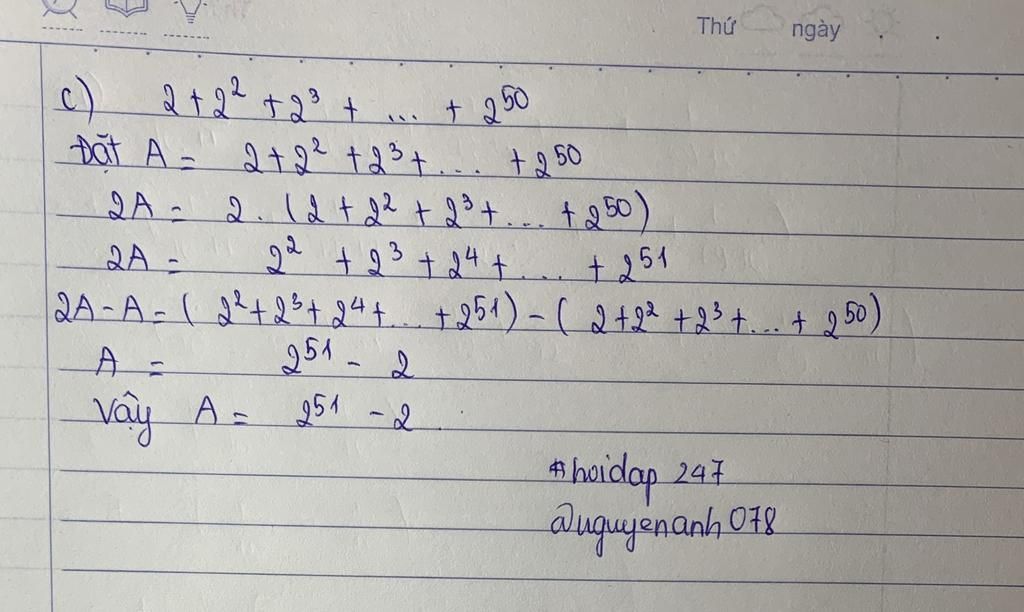 Thứ ngày
c) 2 + 2² + 2³ + ... + 2⁵⁰
Đặt A = 2 + 2² + 2³ + ... + 2⁵⁰
2A = 2 . (2 + 2² + 2³ + ... + 2⁵⁰)
2A = 2² + 2³ + 2⁴ + ... + 2⁵¹
2A - A = ( 2² + 2³ + 2⁴ + ... + 2⁵¹) - ( 2 + 2² + 2³ + ... + 2⁵⁰)
A = 2⁵¹ - 2
Vậy A = 2⁵¹ - 2.
#hoidap 247
@nguyenanh078